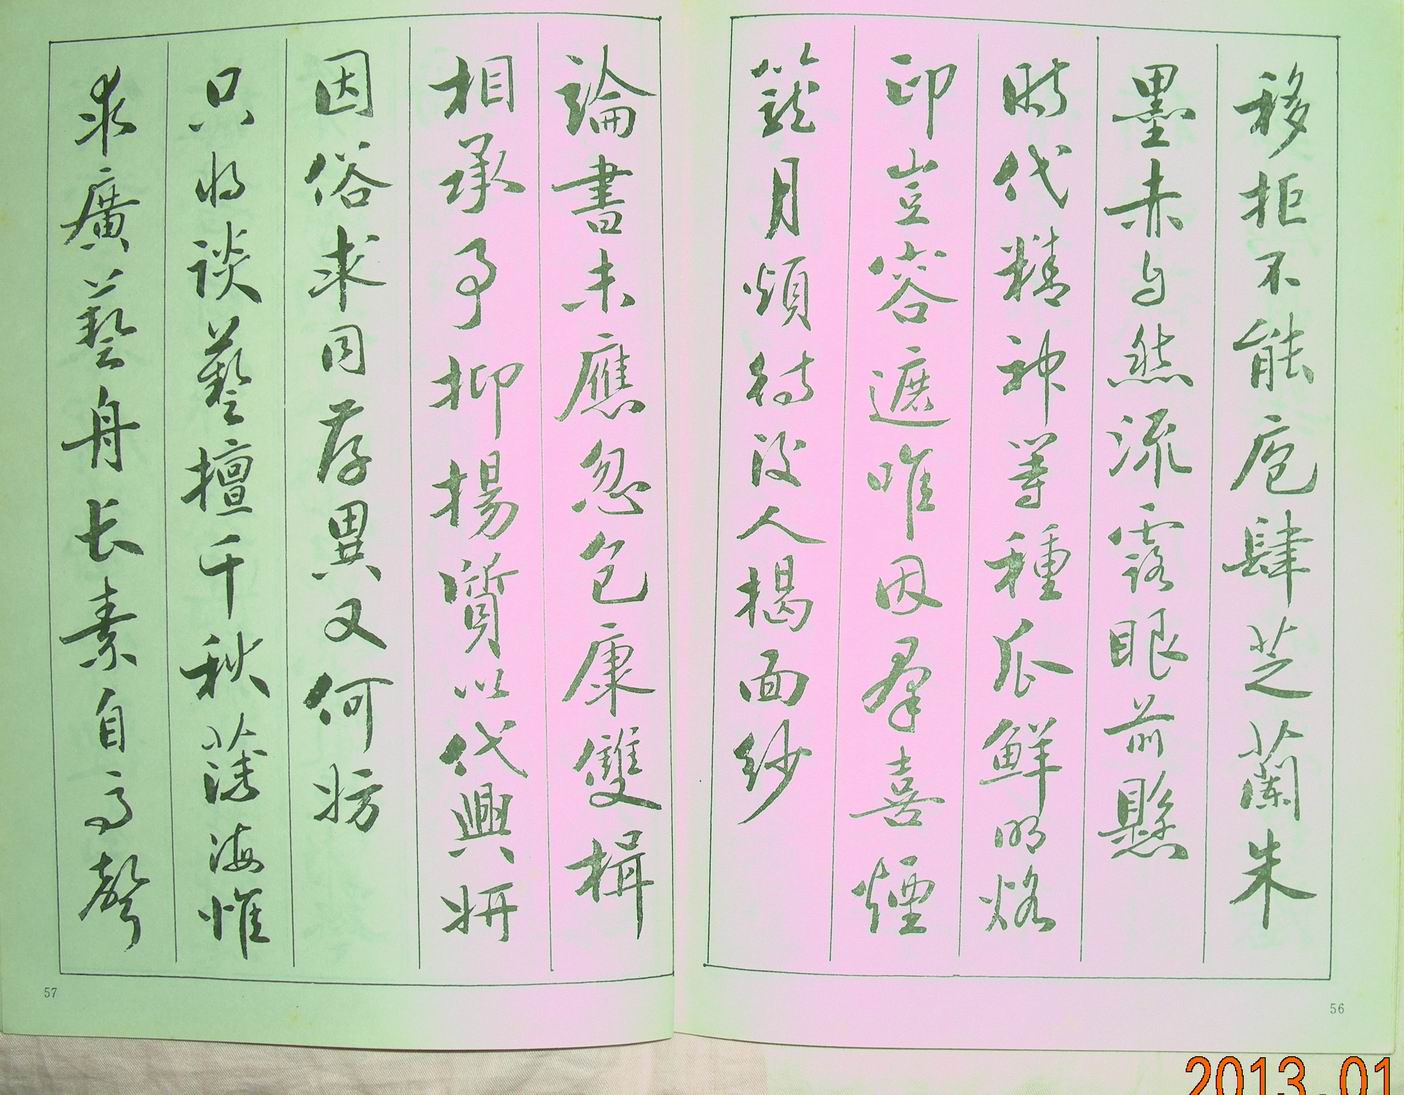 移拒不能庖肆芝蘭朱
墨赤自然流露眼前懸
時代精神等種瓜鮮明烙
印豈容遮唯因羣喜煙
籠月煩待後人揭面紗
論書未應忽包康雙楫
相承予抑揚質以代興妍
因俗求同存異又何妨
只将談藝擅千秋藻海惟
求廣藝舟长素自高聲
56
57
2013.01